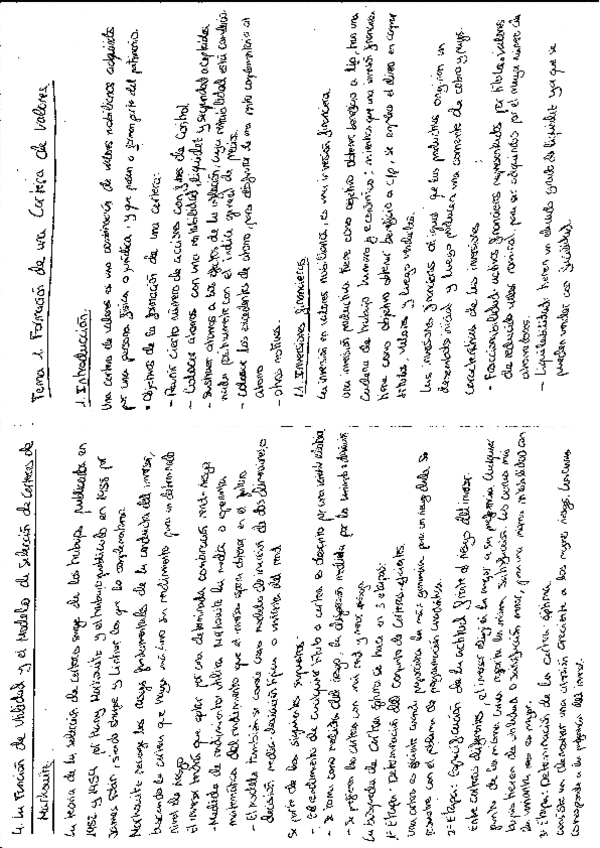 Tema 1. Formación de una Cartera de Valores
1. Introducción.
Una cartera de valores es una combinación de valores mobiliarios adquiridos
por una persona física o jurídica, y que pasan a formar parte del patrimonio.
• Objetivos de la formación de una cartera:
- Reunir cierto número de acciones con fines de control.
- Colocar ahorros con una rentabilidad, liquidez y seguridad aceptadas
- Sustraer ahorros a los efectos de la inflación, cuya rentabilidad está
positivamente con el índice general de precios.
- Colocar los excedentes de ahorro, para disfrutar de una renta complementaria al
ahorro
- Otros motivos.
1.1. Inversiones financieras
La inversión en valores mobiliarios, es una inversión financiera.
Una inversión productiva tiene como objetivo obtener beneficio a l/p, tras una
cadena de trabajo humano y económico; mientras que una inversión financiera
tiene como objetivo obtener beneficio a c/p, se emplea el dinero en comprar
títulos, valores, y luego venderlos.
Las inversiones financieras al igual que las productivas originan un
desembolso inicial y luego producen una corriente de cobros y pagos.
Características de las inversiones
- Fraccionabilidad: activos financieros representados por títulos valores
de reducido valor nominal, para ser adquiridos por el mayor número de
ahorradores.
- Liquidabilidad: tienen un elevado grado de liquidez ya que se
pueden vender con facilidad.
4. La Función de Utilidad y el Modelo de Selección de Carteras de
Markowitz
La teoría de la selección de carteras surge de los trabajos publicados en
1952 y 1959 por Harry Markowitz y el trabajo publicado en 1958 por
James Tobin, siendo Sharpe y Lintner los que lo complementaron.
Markowitz recoge los rasgos fundamentales de la conducta del inversor,
buscando la cartera que haga máximo su rendimiento para un determinado
nivel de riesgo
El inversor tendrá que optar por una determinada combinación rend-riesgo
- Medida de rendimiento utiliza Markowitz la media o esperanza
matemática del rendimiento que el inversor espera obtener en el futuro
- El modelo también se conoce como modelo de inversión de dos dimensiones
decisión media-desviación típica o varianza del rend
Se parte de los siguientes supuestos:
- El rendimiento de cualquier título o cartera es descrito por una variable aleatoria
- Se toma como medida del riesgo, la dispersión medida por la varianza o desviación
- Se prefieren las carteras con un más rend. y menor riesgo
La búsqueda de Cartera óptima se hace en 3 etapas:
1ª Etapa: Determinación del conjunto de Carteras eficientes.
Una cartera es eficiente cuando proporciona la máx. ganancia para un riesgo dado. Se
resuelve con el problema de programación cuadrática.
2ª Etapa: Especificación de la actitud frente al riesgo del inversor.
Entre carteras diferentes, el inversor elegirá la mejor a su preferencia. Cualquier
punto de la misma curva reporta la misma satisfacción. Las curvas más
la varianza, eso es mejor.
3ª Etapa: Determinación de la cartera óptima.